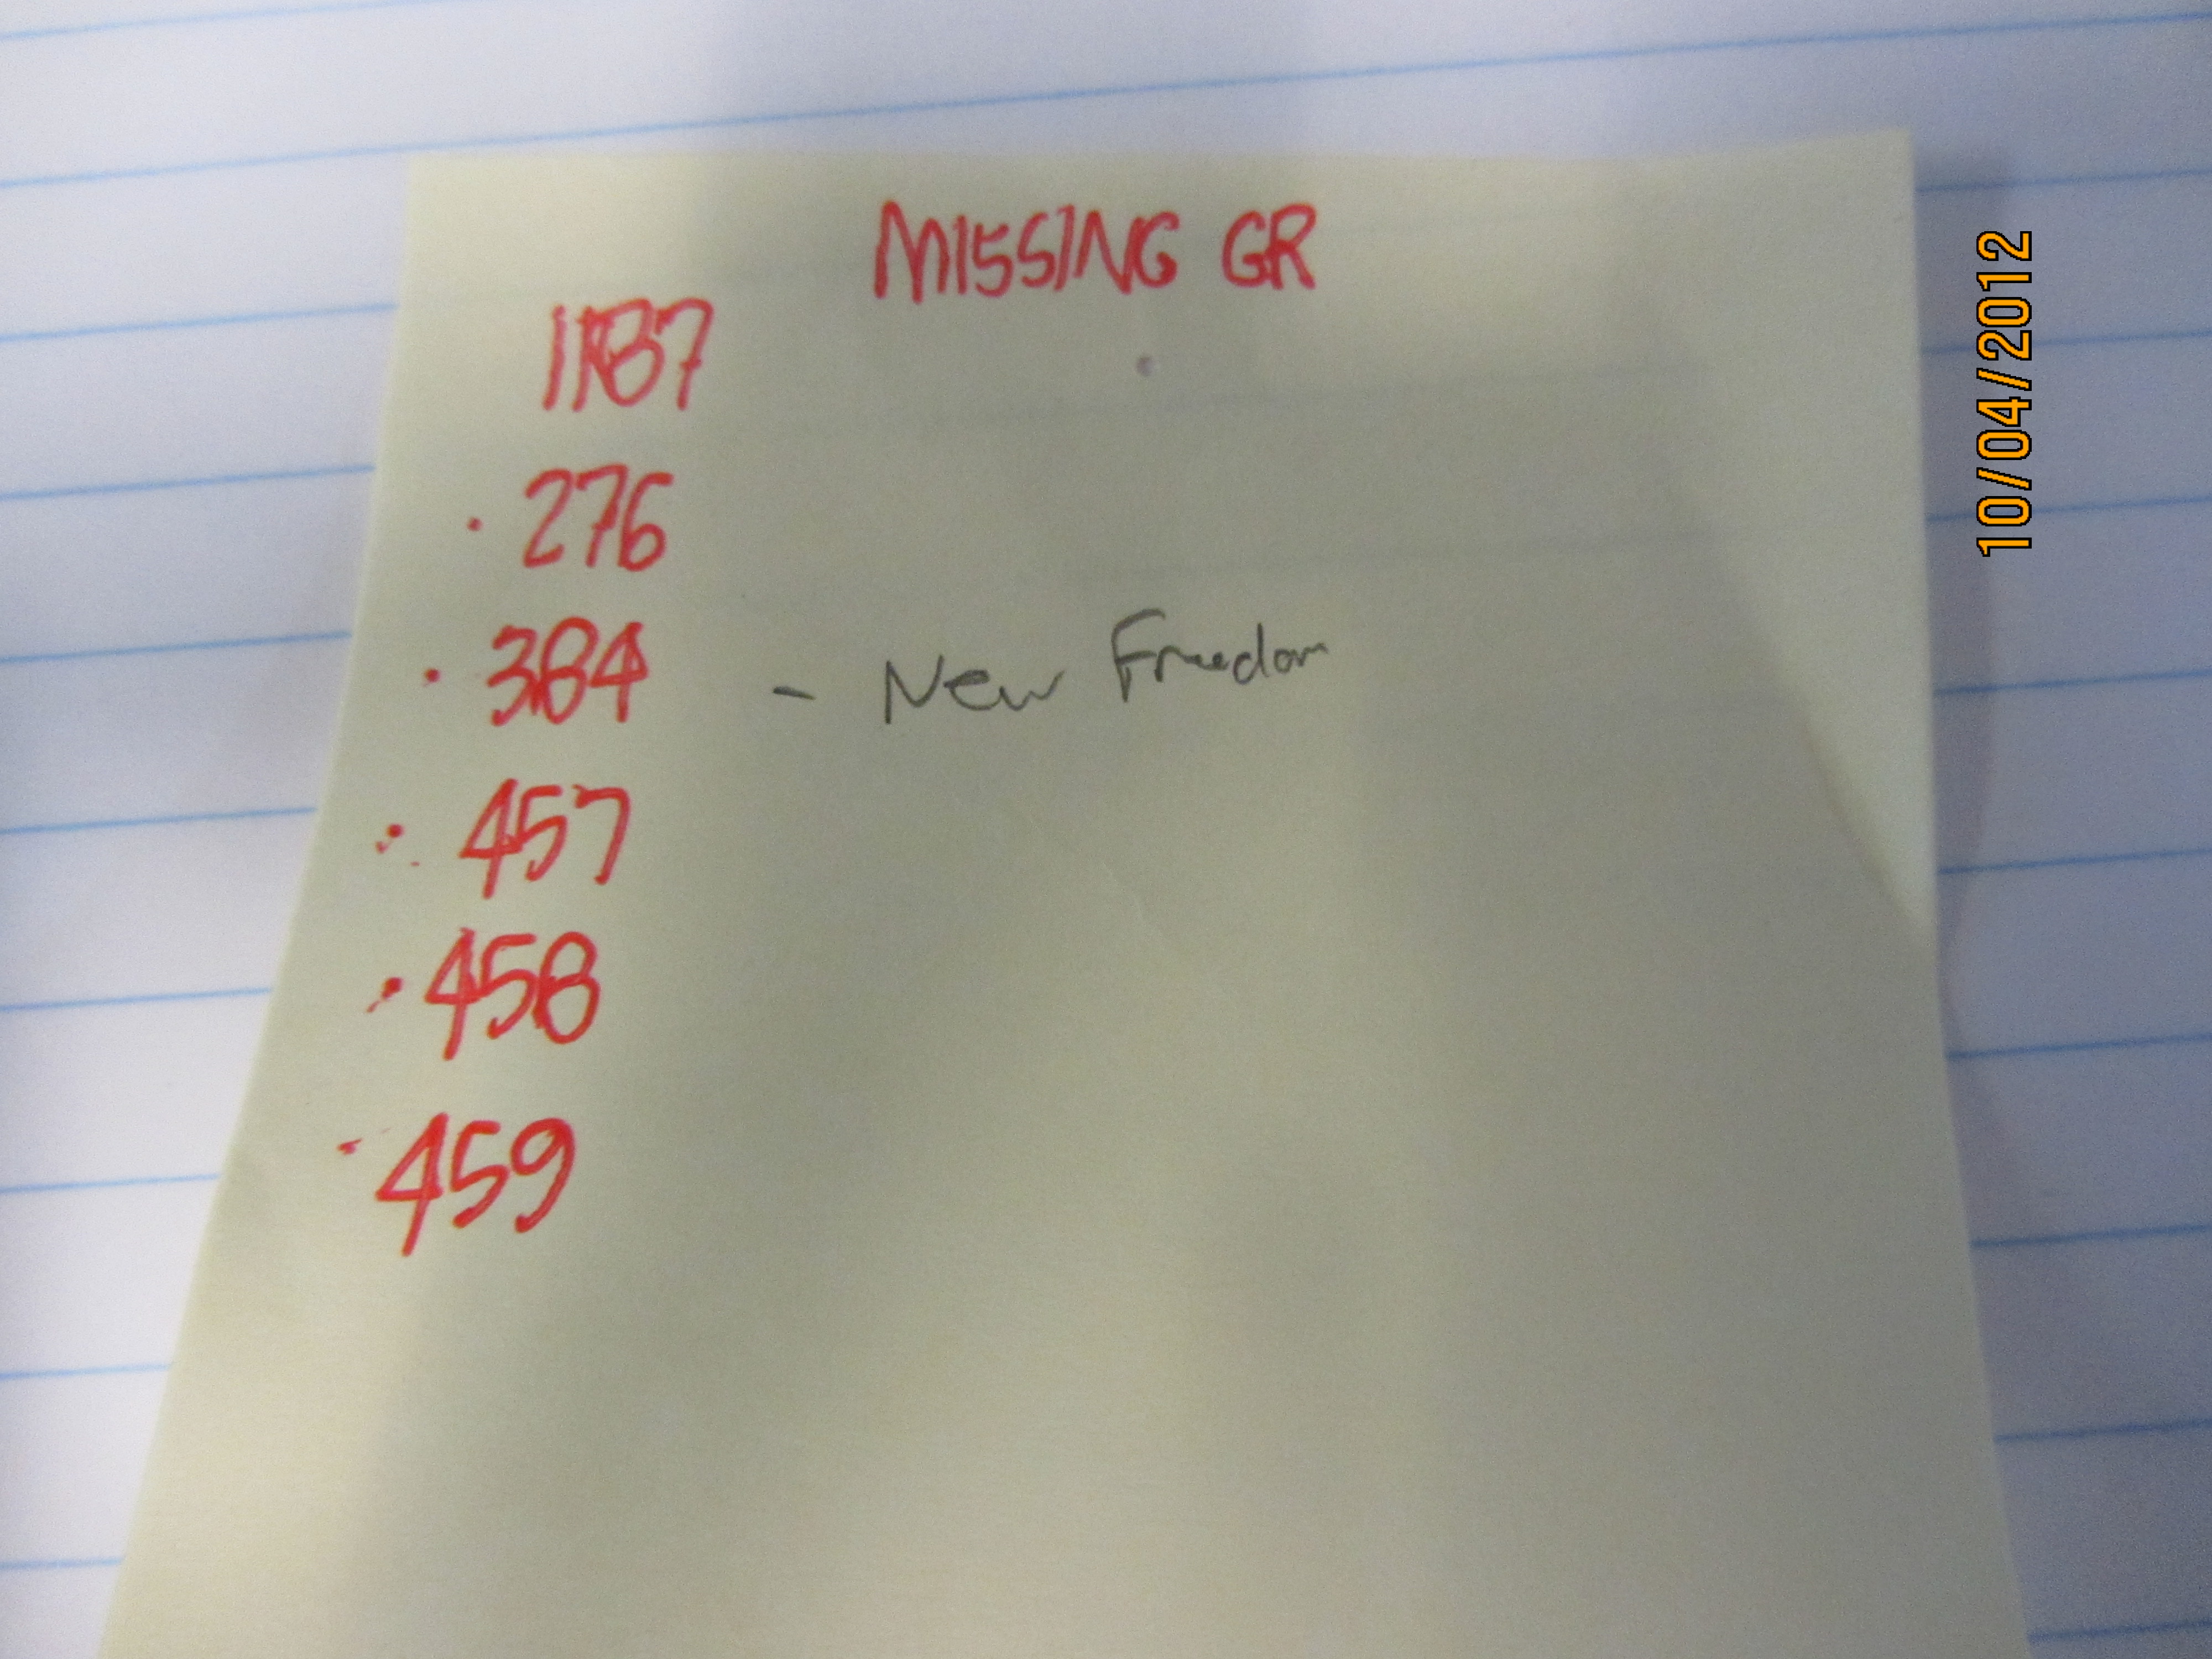 MISSING GR
1187
· 276
· 384 - New Freedom
· 457
· 458
· 459
10/04/2012